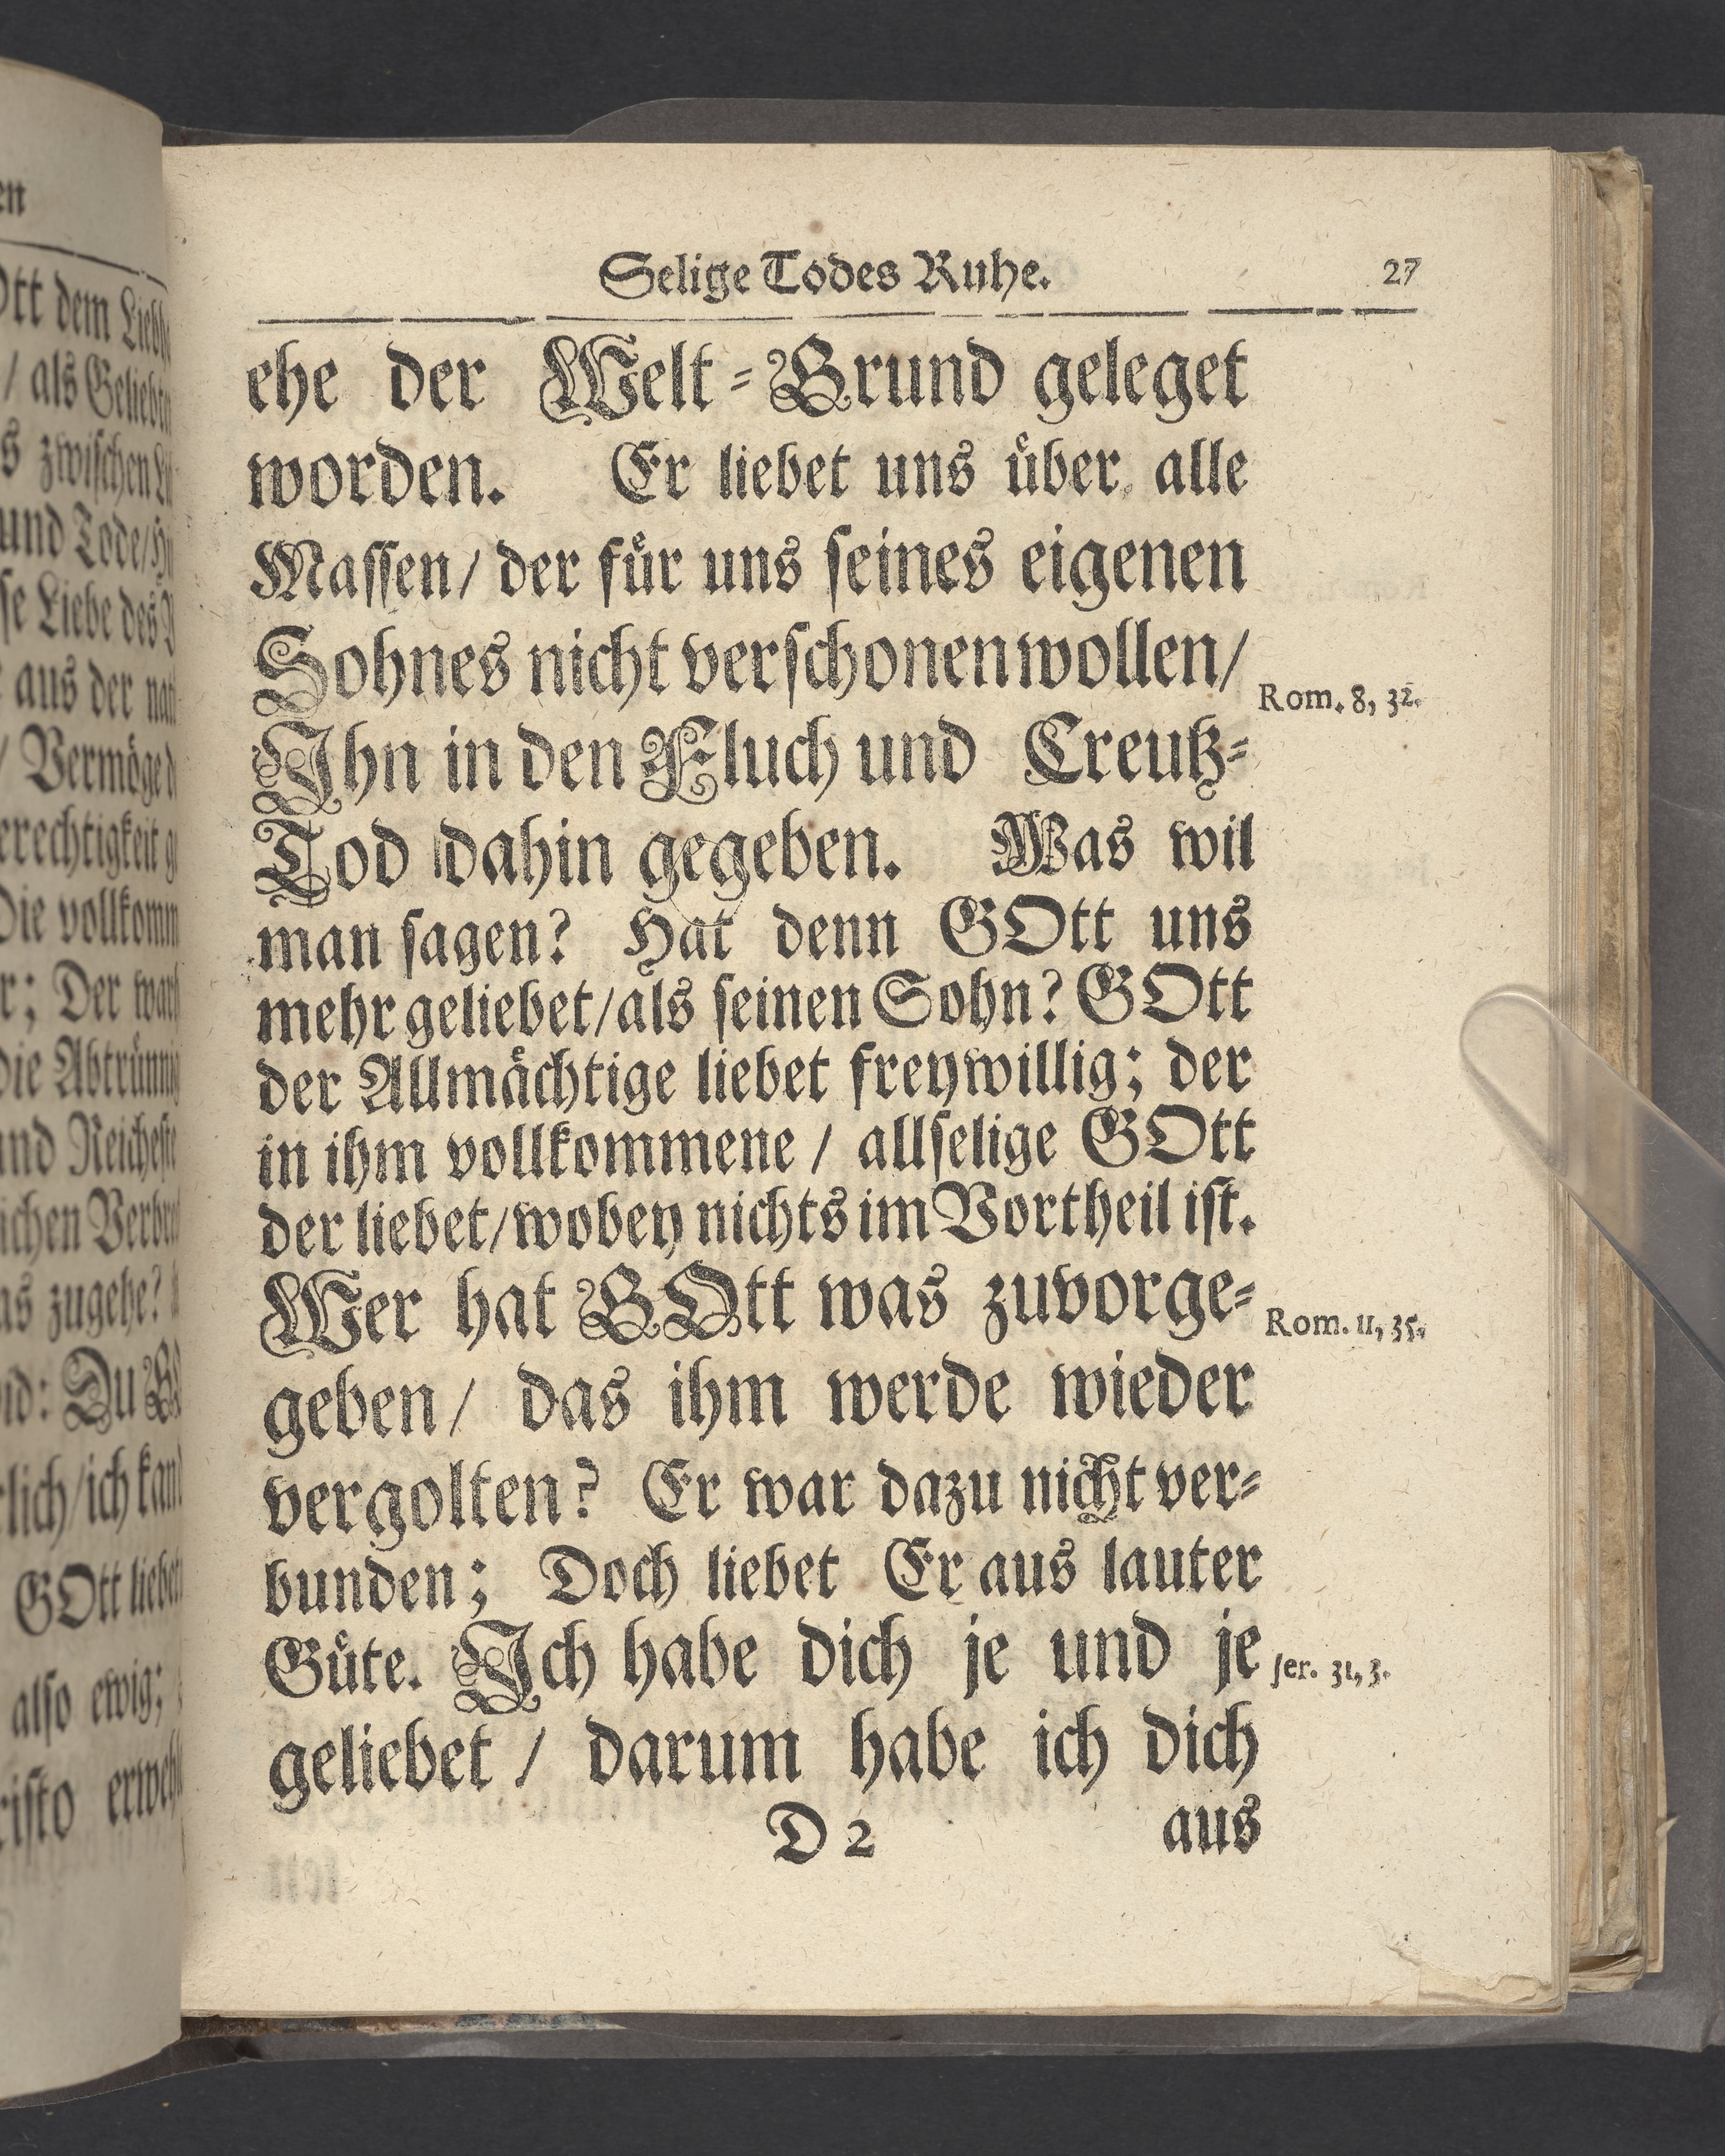 Selige Todes Ruhe. 27
ehe der Welt-Grund geleget
worden. Er liebet uns uͤber alle
Maſſen / der fuͤr uns ſeines eigenen
Sohnes nicht verſchonen wollen /
Rom. 8, 32.
Ihn in den Fluch und Creutz-
Tod dahin gegeben. Was wil
man ſagen? Hat denn GOtt uns
mehr geliebet / als ſeinen Sohn? GOtt
der Allmaͤchtige liebet freywillig; der
in ihm vollkommene / allſelige GOtt
der liebet / wobey nichts im Vortheil iſt.
Wer hat GOtt was zuvorge-
Rom. 11, 35.
geben / das ihm werde wieder
vergolten? Er war dazu nicht ver-
bunden; Doch liebet Er aus lauter
Guͤte. Ich habe dich je und je
Jer. 31, 3.
geliebet / darum habe ich dich
D 2 aus